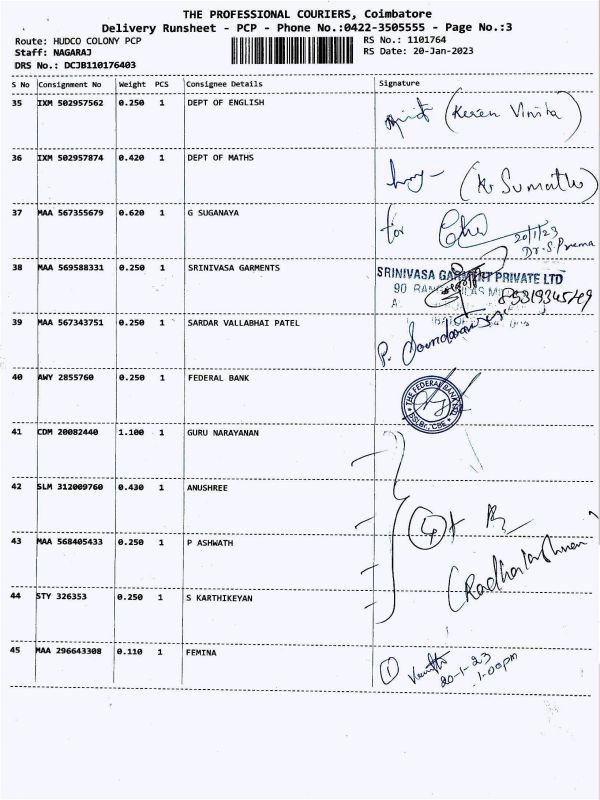 THE PROFESSIONAL COURIERS, Coimbatore
Delivery Runsheet - PCP - Phone No.:0422-3505555 - Page No.:3
Route: HUDCO COLONY PCP
RS No.: 1101764
Staff: NAGARAJ
RS Date: 20-Jan-2023
DRS No.: DCJB110176403
S No Consignment No Weight PCS Consignee Details Signature
35 IXM 502957562 0.250 1 DEPT OF ENGLISH
(Keren Vinita)
36 IXM 502957874 0.420 1 DEPT OF MATHS
37 MAA 567355679 0.620 1 G SUGANAYA
for
20/1/23
Dr. S. Prema
38 MAA 569588331 0.250 1 SRINIVASA GARMENTS
SRINIVASA GARMENT PRIVATE LTD
90
39 MAA 567343751 0.250 1 SARDAR VALLABHAI PATEL
40 AWY 2855760 0.250 1 FEDERAL BANK
THE FEDERAL BANK
41 CDM 20082440 1.100 1 GURU NARAYANAN
42 SLM 312009760 0.430 1 ANUSHREE
43 MAA 568405433 0.250 1 P ASHWATH
(Radhalakshman
44 STY 326353 0.250 1 S KARTHIKEYAN
45 MAA 296643308 0.110 1 FEMINA
1
20-1-23
1.00pm